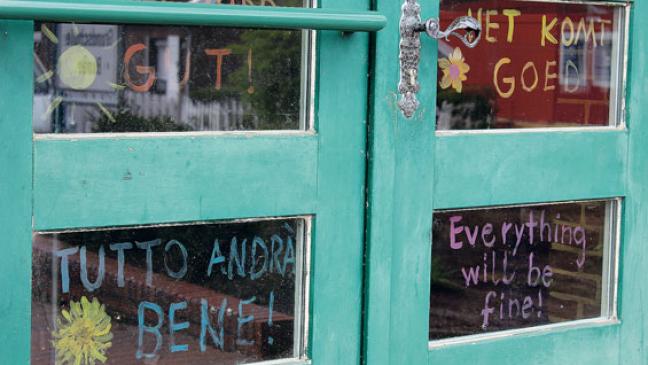 GUT!
HET KOMT
GOED
TUTTO ANDRÀ
BENE!
Everything
will be
fine!